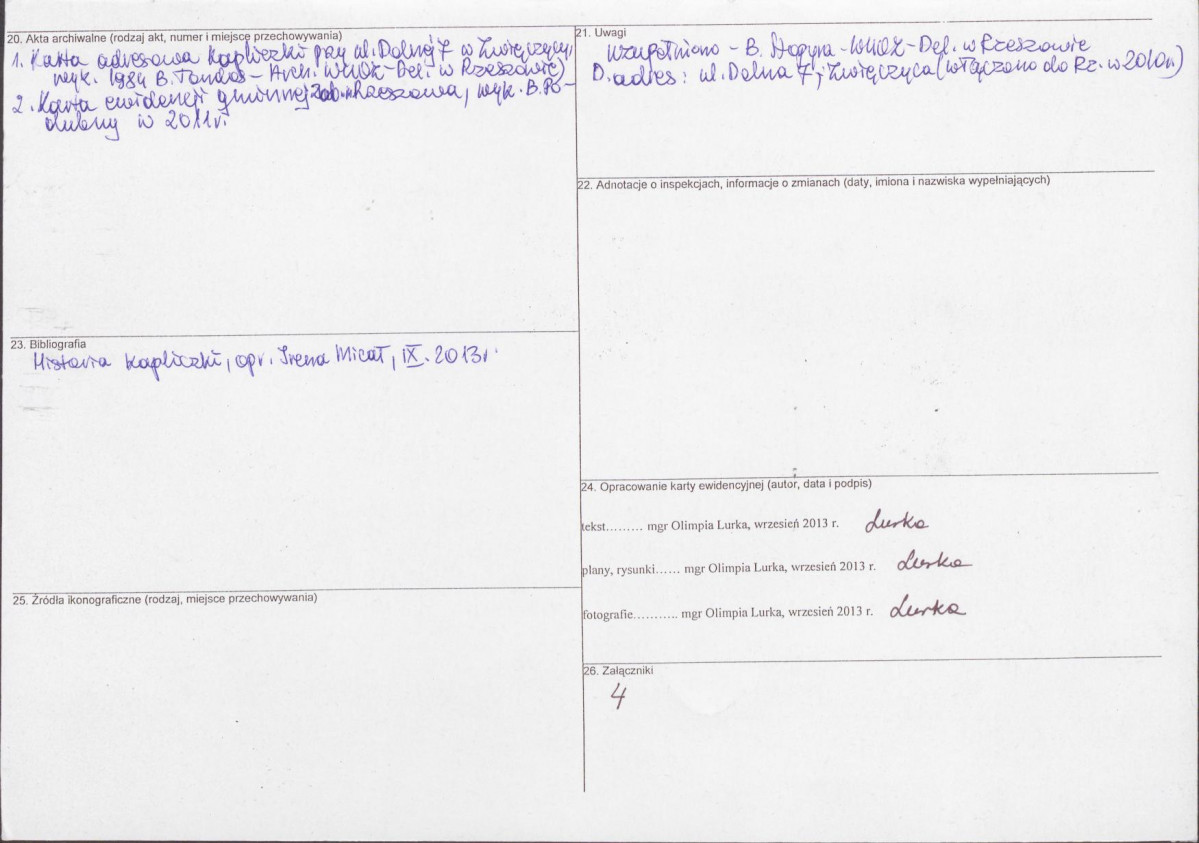 20. Akta archiwalne (rodzaj akt, numer i miejsce przechowywania)
1. Karta adresowa kapliczki przy ul. Dolnej 7 w Zwięczycy,
wyk. 1984 B. Tondos - Arch. WUOZ - Del. w Rzeszowie)
2. Karta ewidencji gminnej zab. Rzeszowa, wyk. B. Po-
dubny w 2011r.
21. Uwagi
Uzupełniono - B. Stopyra - WUOZ - Del. w Rzeszowie
D. adres: ul. Dolna 7, Zwięczyca (włączono do Rz. w 2010r.)
22. Adnotacje o inspekcjach, informacje o zmianach (daty, imiona i nazwiska wypełniających)
23. Bibliografia
Historia kapliczki, opr. Irena Micał, IX. 2013r.
24. Opracowanie karty ewidencyjnej (autor, data i podpis)
tekst......... mgr Olimpia Lurka, wrzesień 2013 r. Lurka
plany, rysunki...... mgr Olimpia Lurka, wrzesień 2013 r. Lurka
fotografie........... mgr Olimpia Lurka, wrzesień 2013 r. Lurka
25. Źródła ikonograficzne (rodzaj, miejsce przechowywania)
26. Załączniki
4